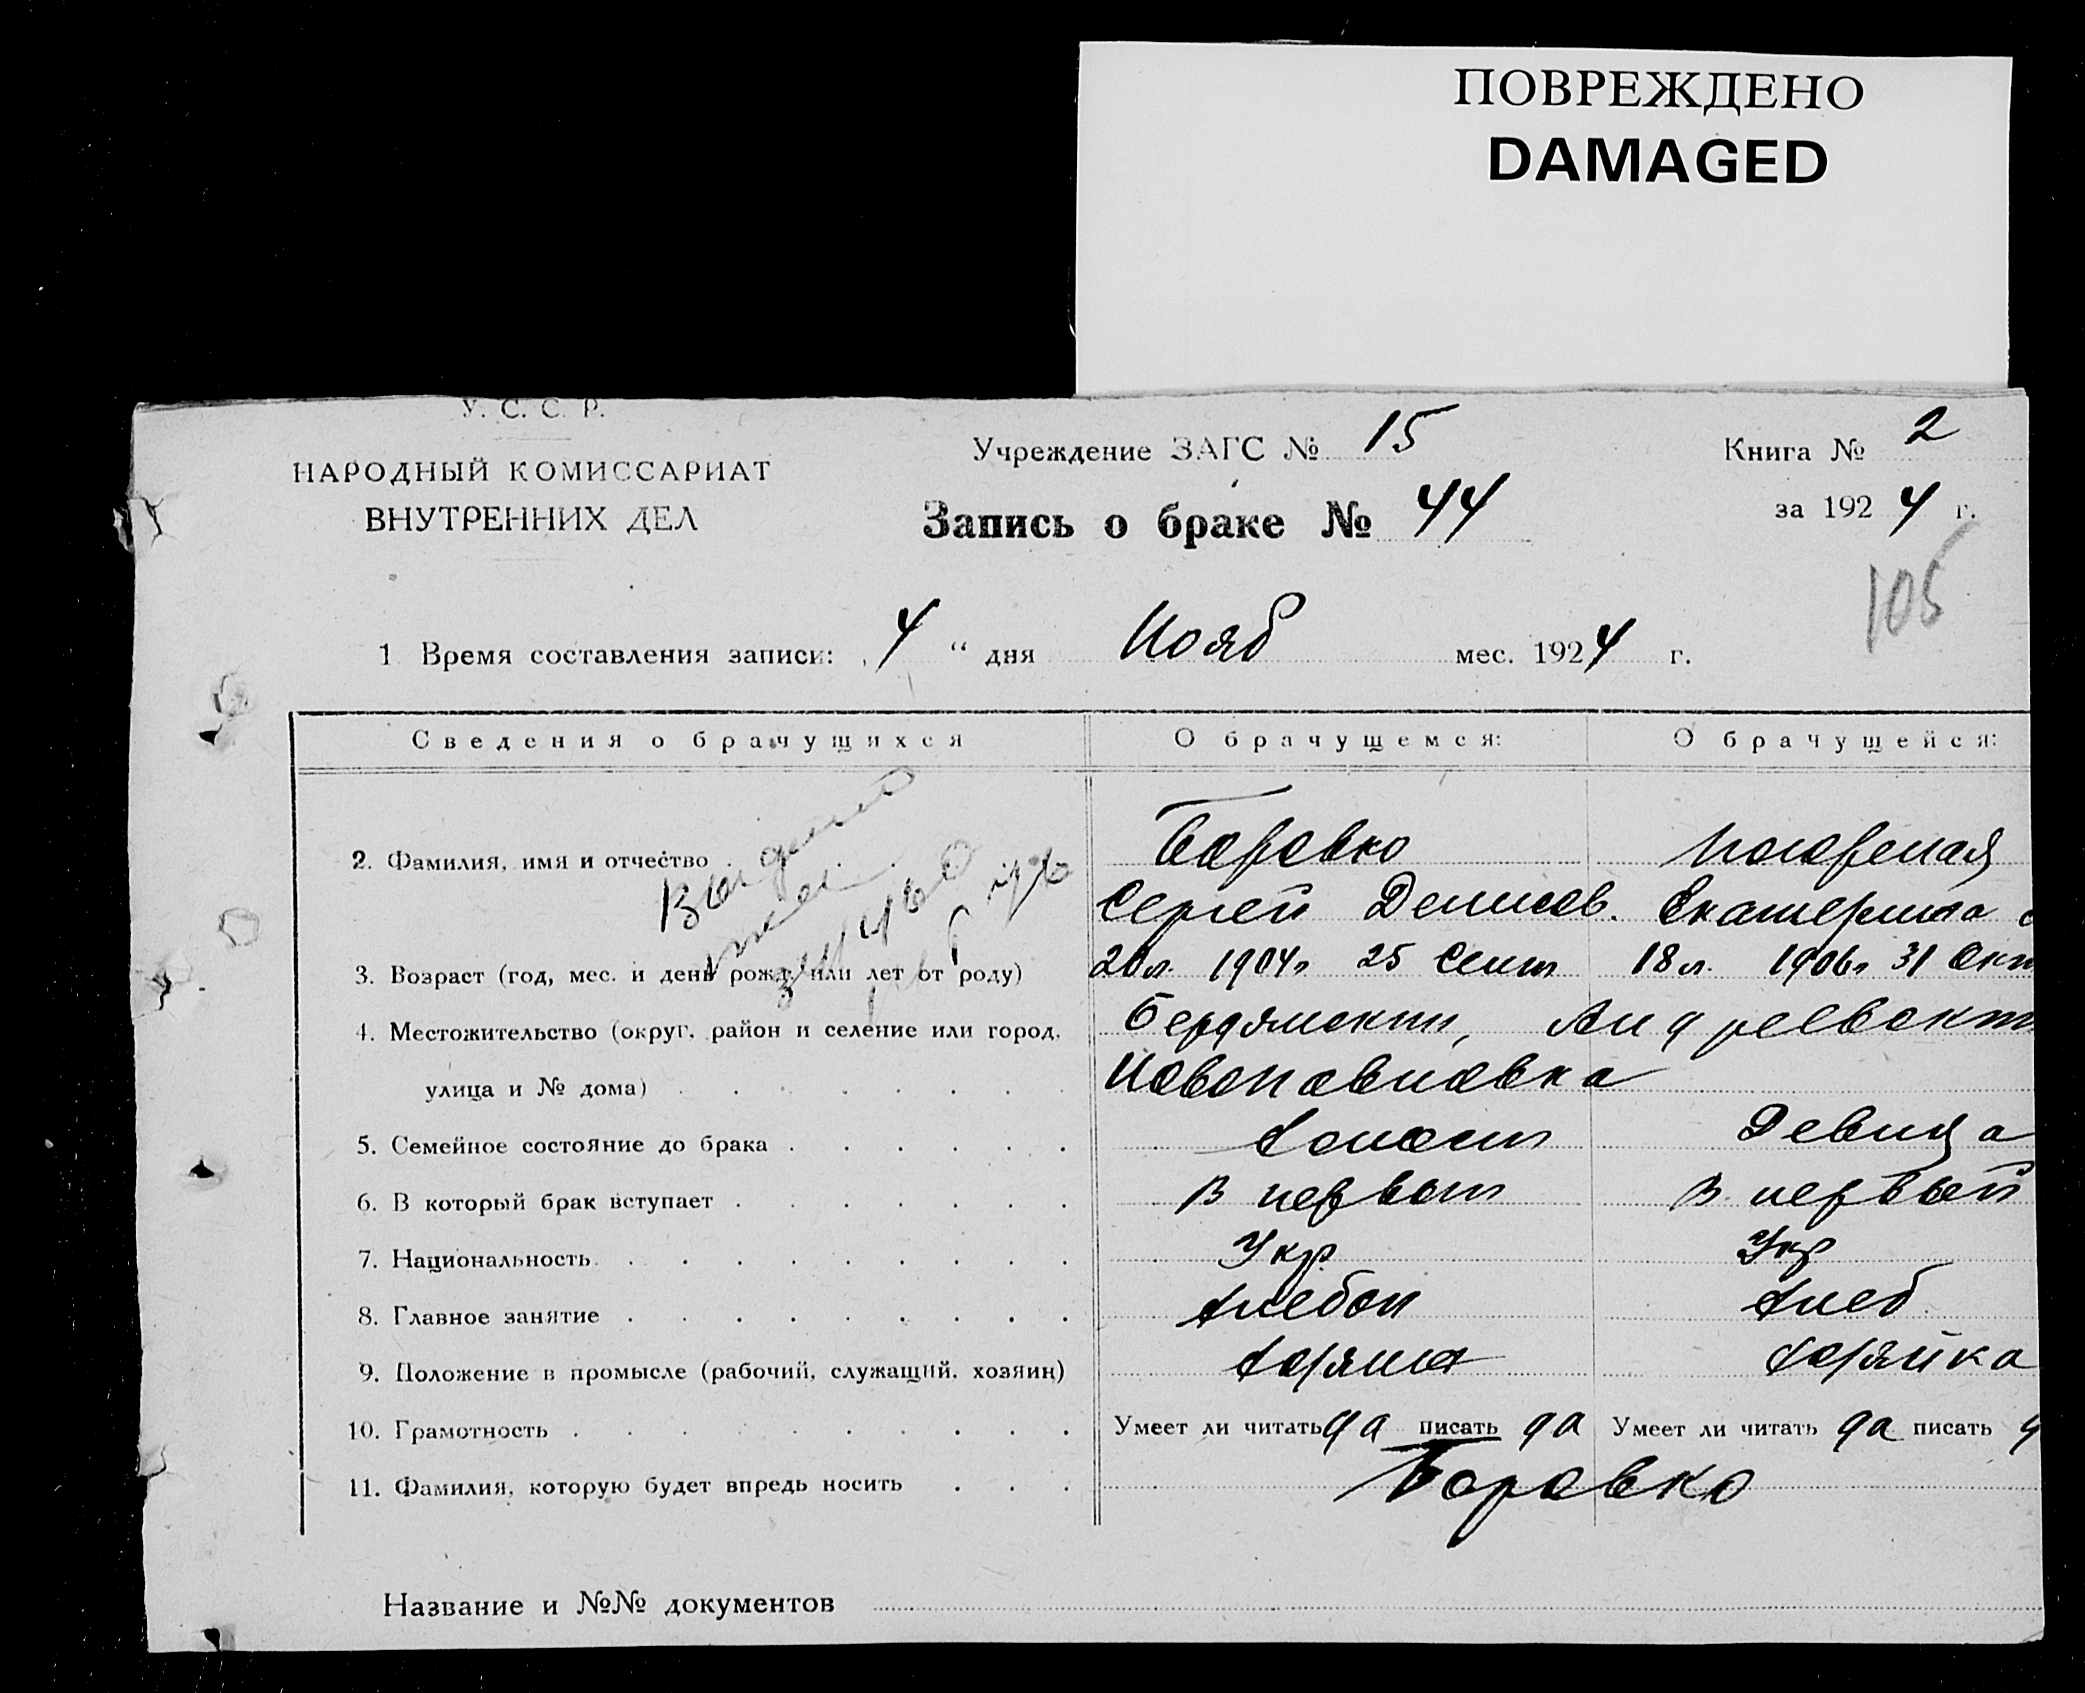 ПОВРЕЖДЕНО
DAMAGED
У. С. С. Р.
НАРОДНЫЙ КОМИССАРИАТ
ВНУТРЕННИХ ДЕЛ
Учреждение ЗАГС № 15
Книга № 2
Запись о браке № 44
за 1924 г.
105
1 Время составления записи: „4 “ дня Нояб мес. 1924 г.
Сведения о брачущихся О брачущемся: О брачущейся:
2. Фамилия, имя и отчество . Боровко Погорелая
Выдано
Сергей Денисов. Екатерина
3. Возраст (год, мес. и день рожд. или лет от роду) 20 л. 1904 г 25 Сент 18 л. 1906 г 31 Окт
4. Местожительство (округ, район и селение или город, Бердянский, Андреевский
улица и № дома) Новопавловка
5. Семейное состояние до брака Холост Девица
6. В который брак вступает В первый В первый
7. Национальность Укр Укр
8. Главное занятие Хлебоп Хлеб
9. Положение в промысле (рабочий, служащий, хозяин) Хозяин Хозяйка
10. Грамотность Умеет ли читать да писать да Умеет ли читать да писать д
11. Фамилия, которую будет впредь носить Боровко
Название и №№ документов